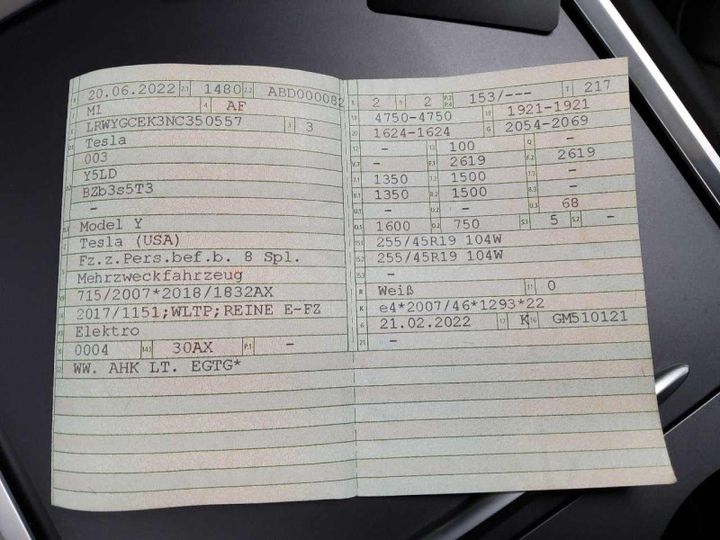 20.06.2022 2.1 1480 2.2 ABD000082
M1 4 AF
LRWYGCEK3NC350557 3 3
Tesla
003
Y5LD
BZb3s5T3
-
Model Y
Tesla (USA)
Fz.z.Pers.bef.b. 8 Spl.
Mehrzweckfahrzeug
715/2007*2018/1832AX
2017/1151;WLTP;REINE E-FZ
Elektro
0004 30AX P.1 -
WW. AHK LT. EGTG*
2 2 P.2 P.4 153/--- T 217
4750-4750 1921-1921
1624-1624 G 2054-2069
- 100 Q -
- F.1 2619 F.2 2619
7.1 1350 7.2 1500 7.3 -
8.1 1350 8.2 1500 8.3 -
- - U.3 68
1600 O.2 750 S.1 5 S.2 -
255/45R19 104W
255/45R19 104W
-
R Weiß 11 0
K e4*2007/46*1293*22
6 21.02.2022 17 K 16 GM510121
21 -